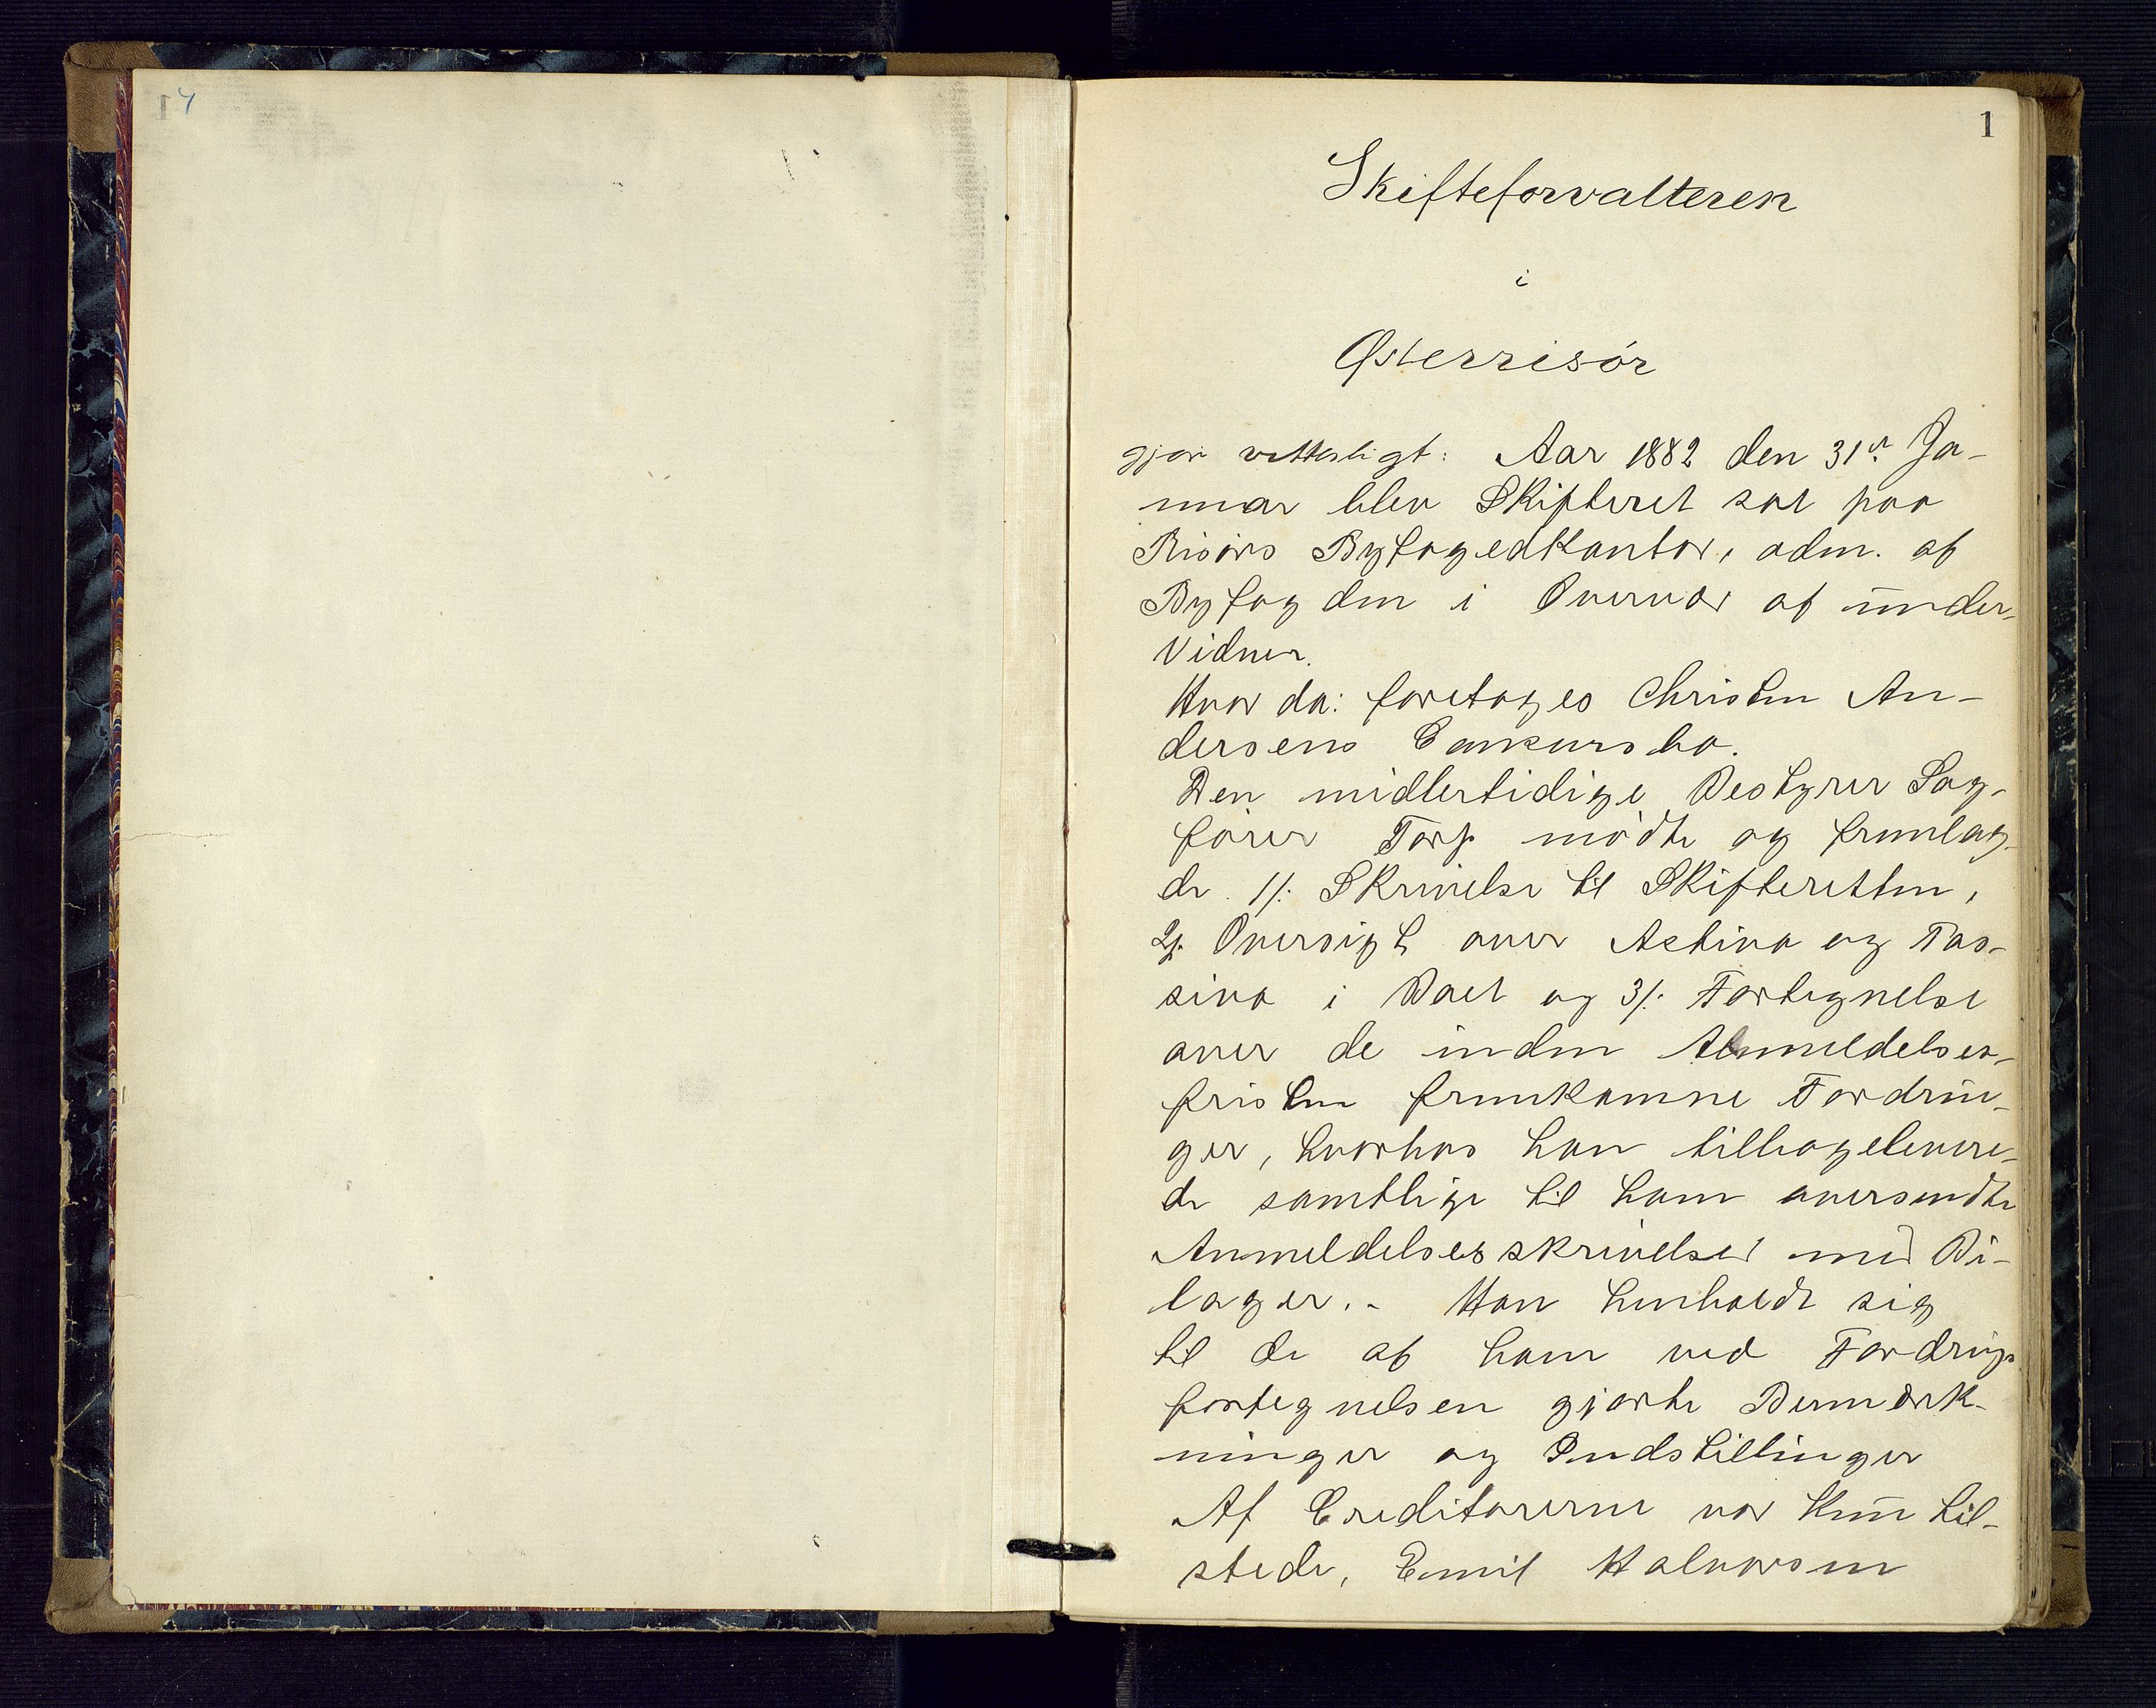 1
Skifteforvalteren
i
Østerrisör
gjör vitterligt: Aar 1882 den 31te Ja-
nuar blev Skifteret sat paa
Risörs Byfogedkontor, adm. af
Byfogden i Overvær af under.
Vidner.
Hvor da: foretoges Christen An-
dersens Concursbo.
Den midlertidige Bestyrer Sag-
förer Torp mödte og fremlag-
de 1/: Skrivelse til Skifteretten,
2/: Oversigt over Activa og Pas-
siva i Boet og 3/: Fortegnelse
over de inden Anmeldelses-
fristen fremkomne Fordrin-
ger, hvorhos han tilbagelevere-
de samtlige til ham oversendte
Anmeldelsesskrivelser med Bi-
lager.- Han henholdt sig
til de af ham ved Fordrings
fortegnelsen gjorte Bemærk-
ninger og Indstillinger
Af Creditorerne var kun til-
stede, Emil Halvorsen